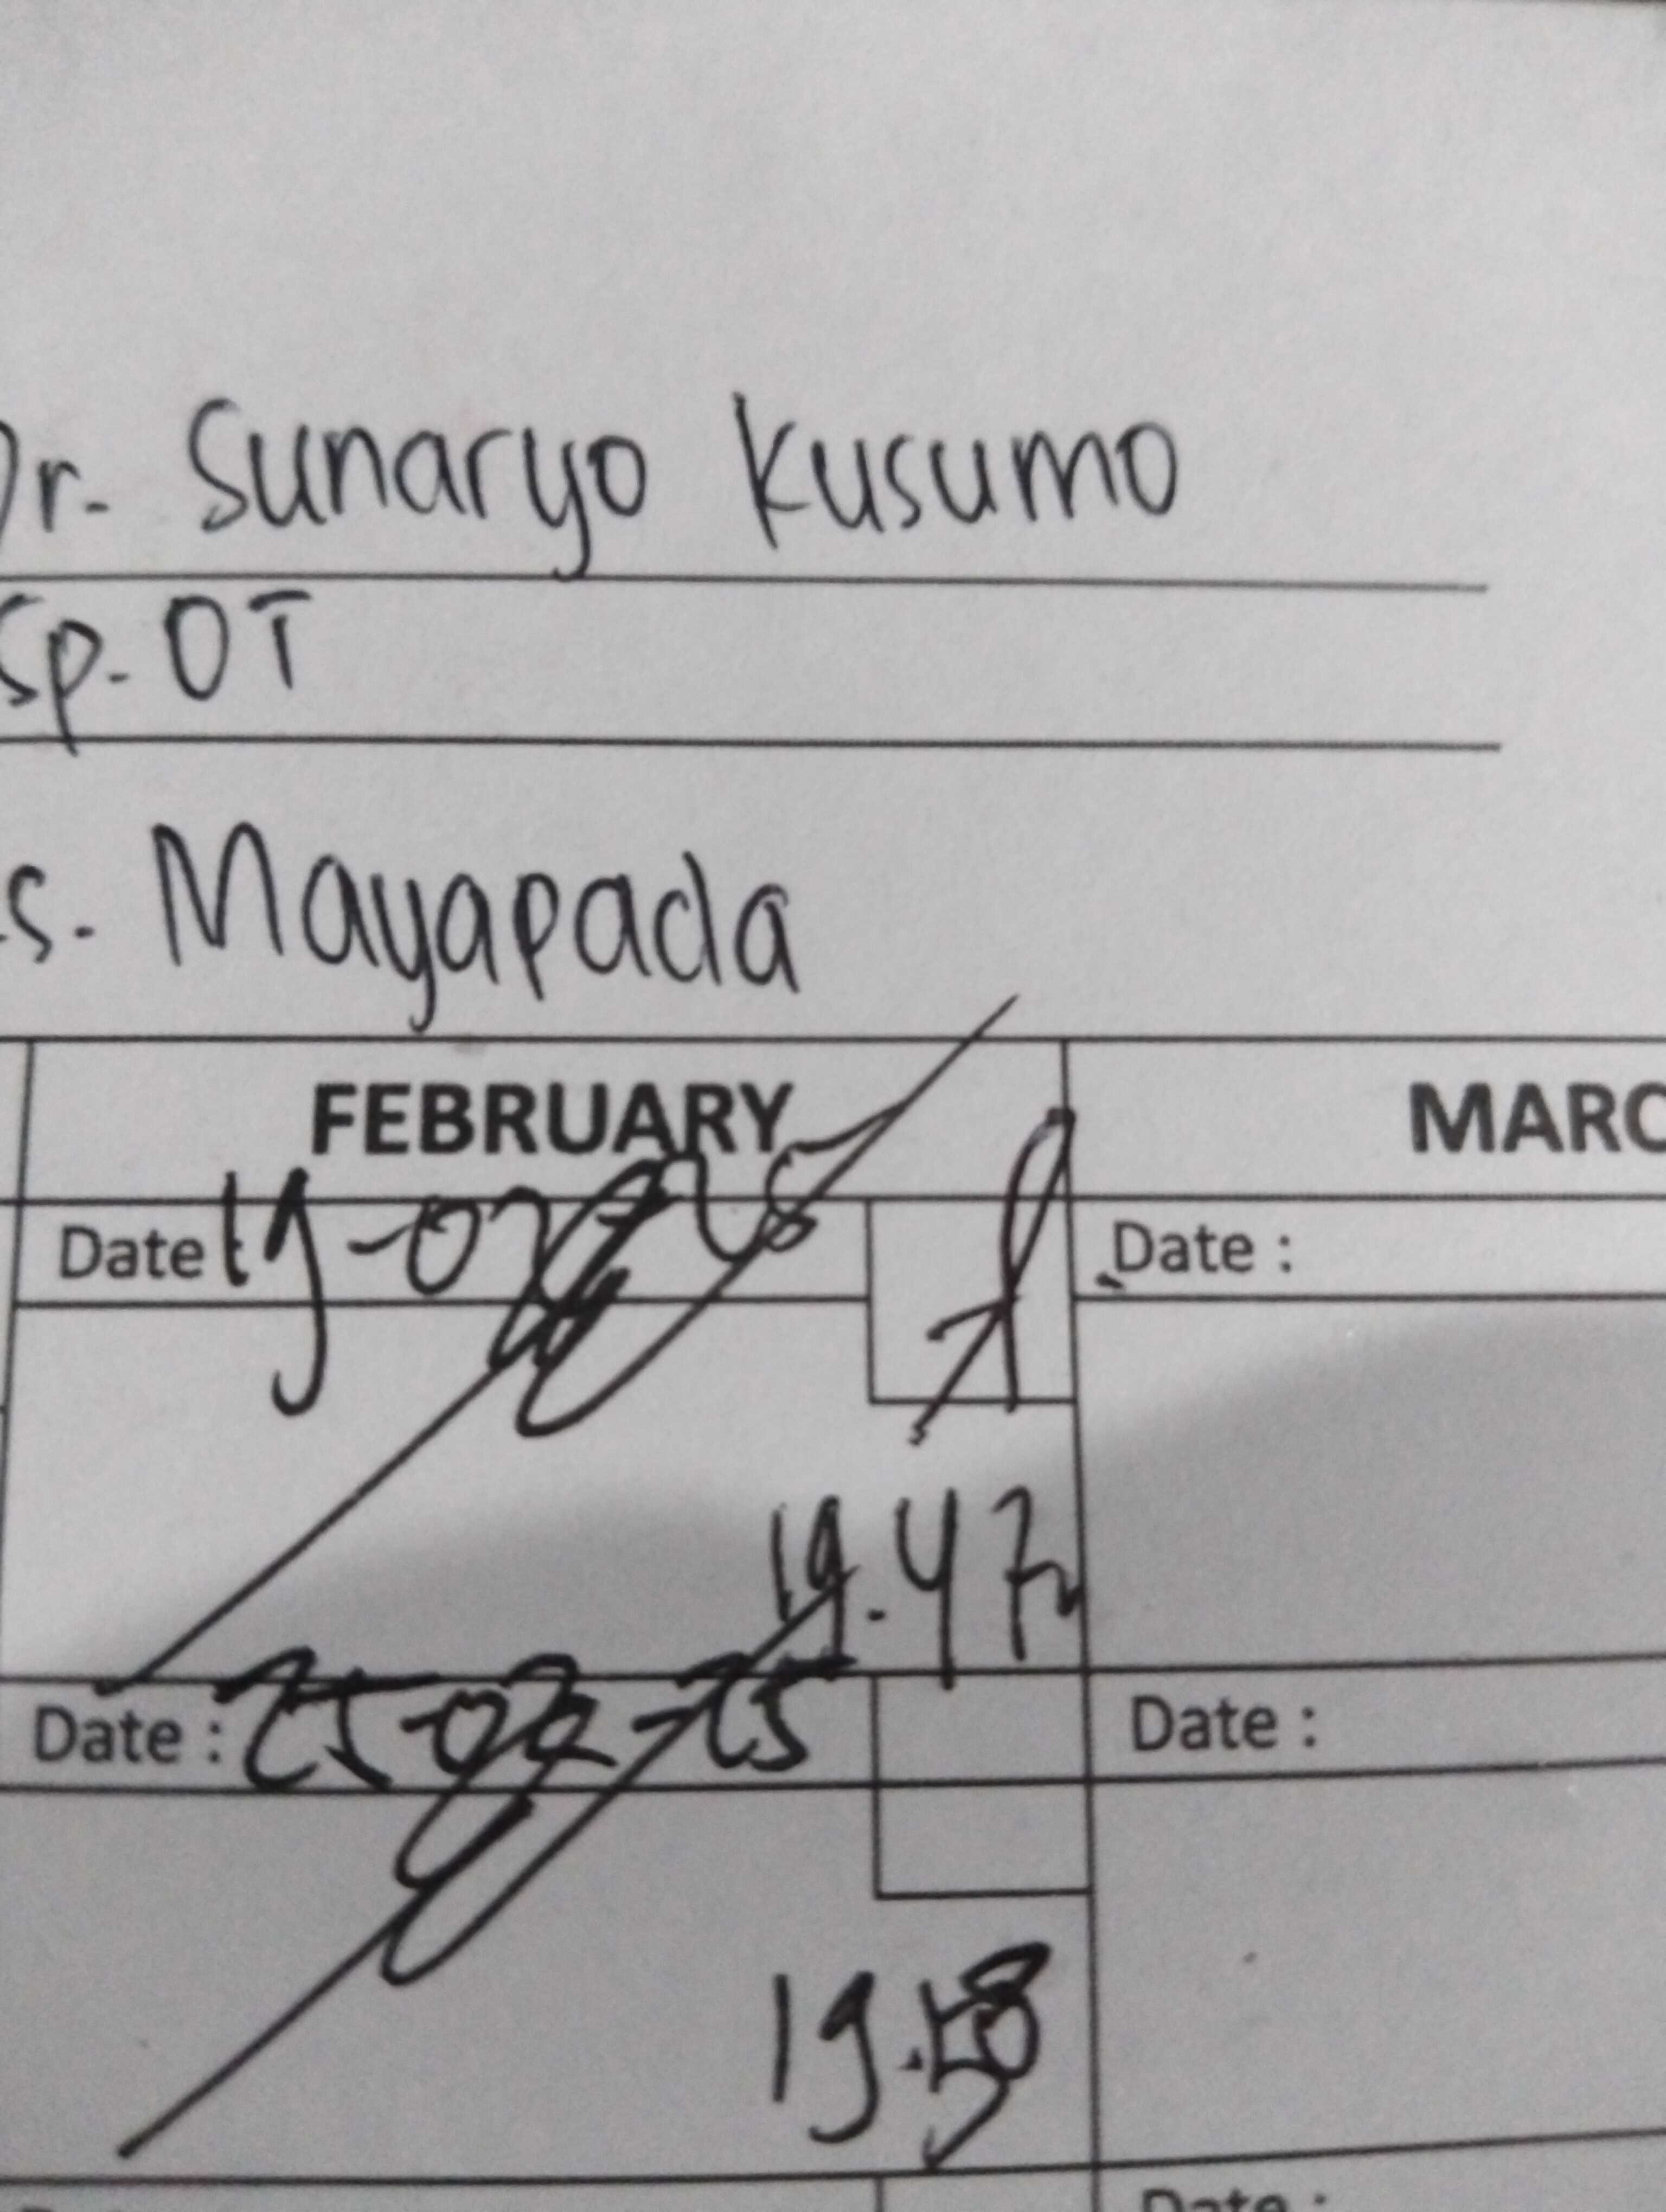 Dr. Sunaryo Kusumo
Sp. OT
s. Mayapada
FEBRUARY MARC
Date 19-02-25 Date :
19.47
Date : 25-02-25 Date :
19.58
Date :